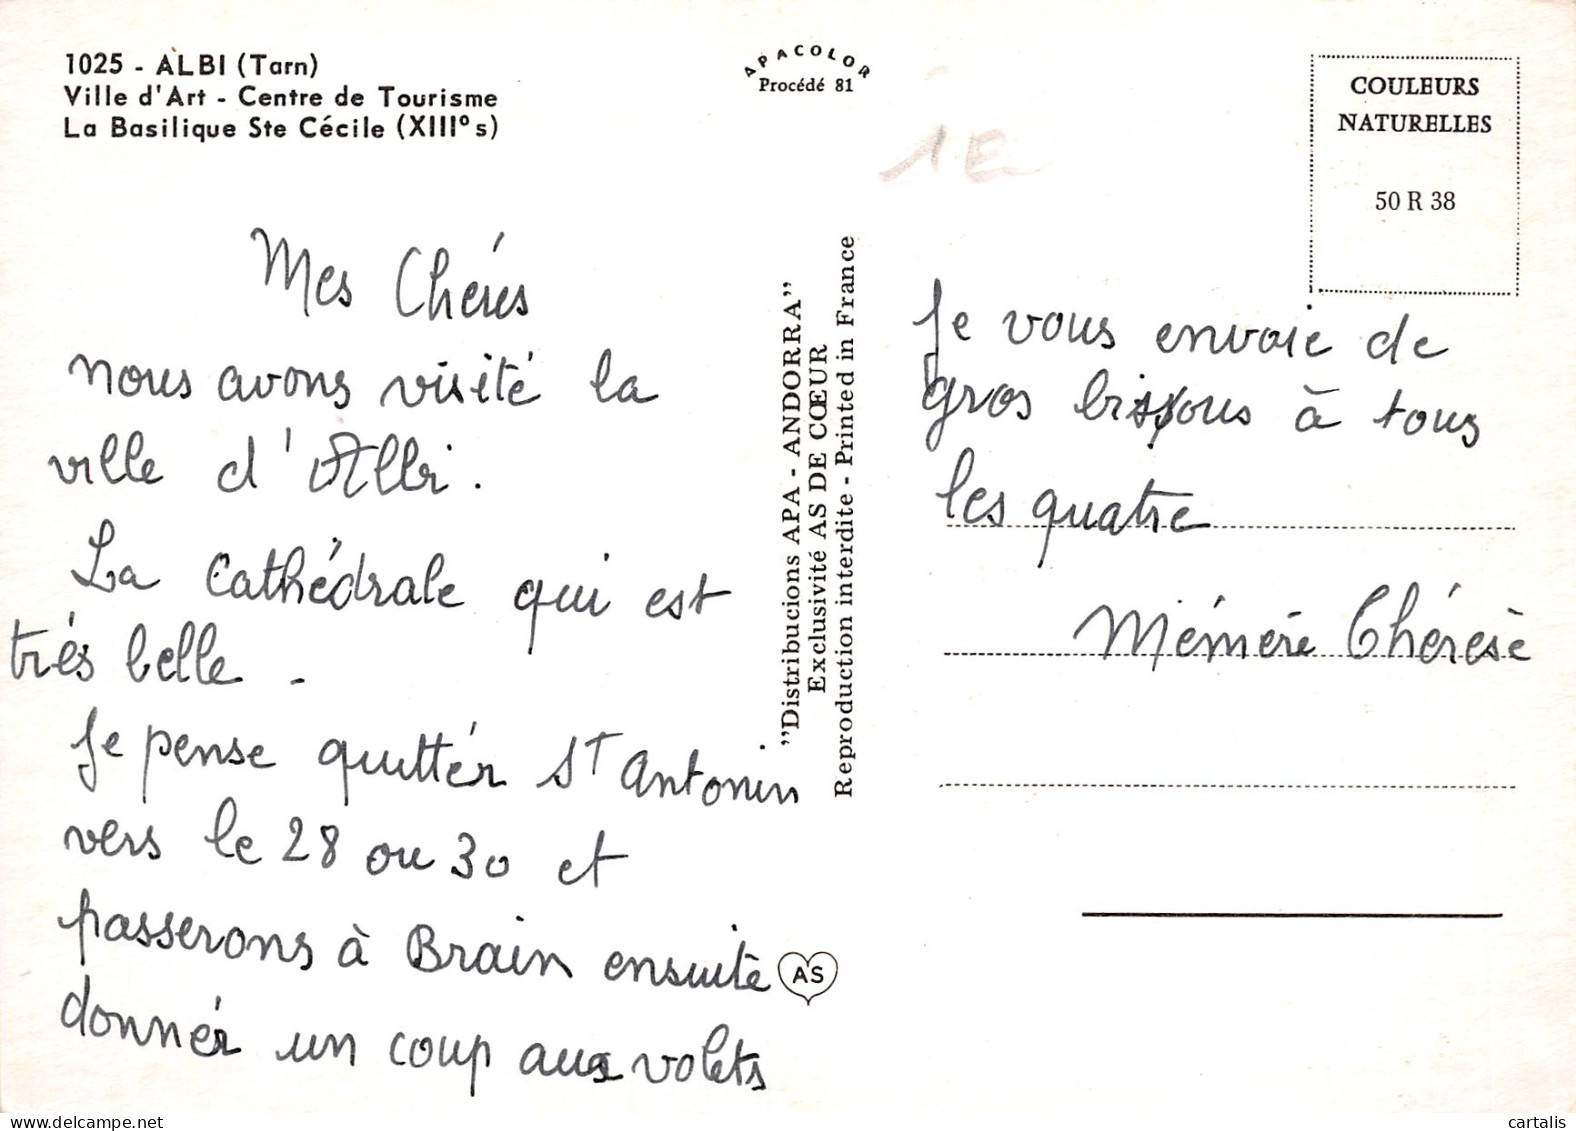 1025 - ALBI (Tarn)
Ville d'Art - Centre de Tourisme
La Basilique Ste Cécile (XIIIº s)
APACOLOR
Procédé 81
COULEURS
NATURELLES
50 R 38
1E
Mes Chérés
nous avons visité la
ville d' Albi.
La Cathédrale qui est
trés belle -
Je pense quittér St Antonin
vers le 28 ou 30 et
passerons à Brain ensuite
donnér un coup aux volets
"Distribucions APA - ANDORRA"
Exclusivité AS DE CŒUR
Reproduction interdite - Printed in France
AS
Je vous envoie de
gros bisous à tous
les quatre
Mémére Thérése
cartalis
www.delcampe.net